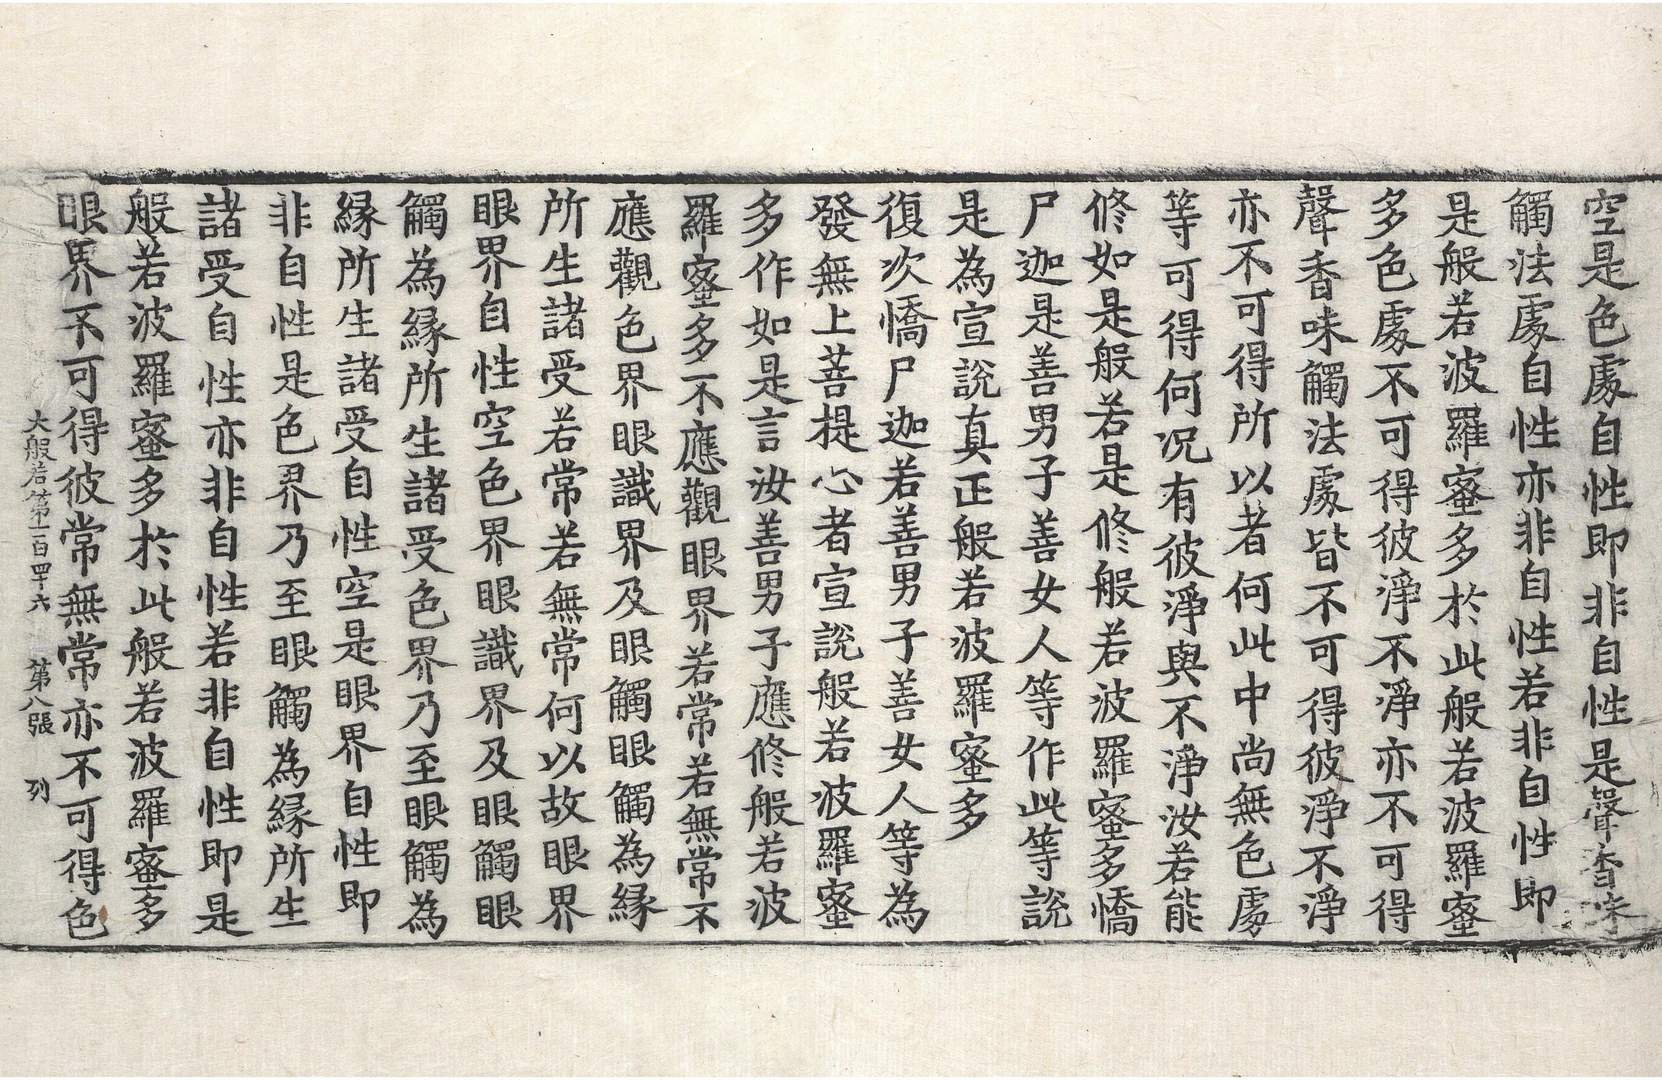 空是色處自性即非自性是聲香味
觸法處自性亦非自性若非自性即
是般若波羅蜜多於此般若波羅蜜
多色處不可得彼淨不淨亦不可得
聲香味觸法處皆不可得彼淨不淨
亦不可得所以者何此中尚無色處
等可得何況有彼淨與不淨汝若能
修如是般若是修般若波羅蜜多憍
尸迦是善男子善女人等作此等說
是為宣說真正般若波羅蜜多
復次憍尸迦若善男子善女人等為
發無上菩提心者宣說般若波羅蜜
多作如是言汝善男子應修般若波
羅蜜多不應觀眼界若常若無常不
應觀色界眼識界及眼觸眼觸為緣
所生諸受若常若無常何以故眼界
眼界自性空色界眼識界及眼觸眼
觸為緣所生諸受色界乃至眼觸為
緣所生諸受自性空是眼界自性即
非自性是色界乃至眼觸為緣所生
諸受自性亦非自性若非自性即是
般若波羅蜜多於此般若波羅蜜多
眼界不可得彼常無常亦不可得色
大般若第一百四十六 第八張 列